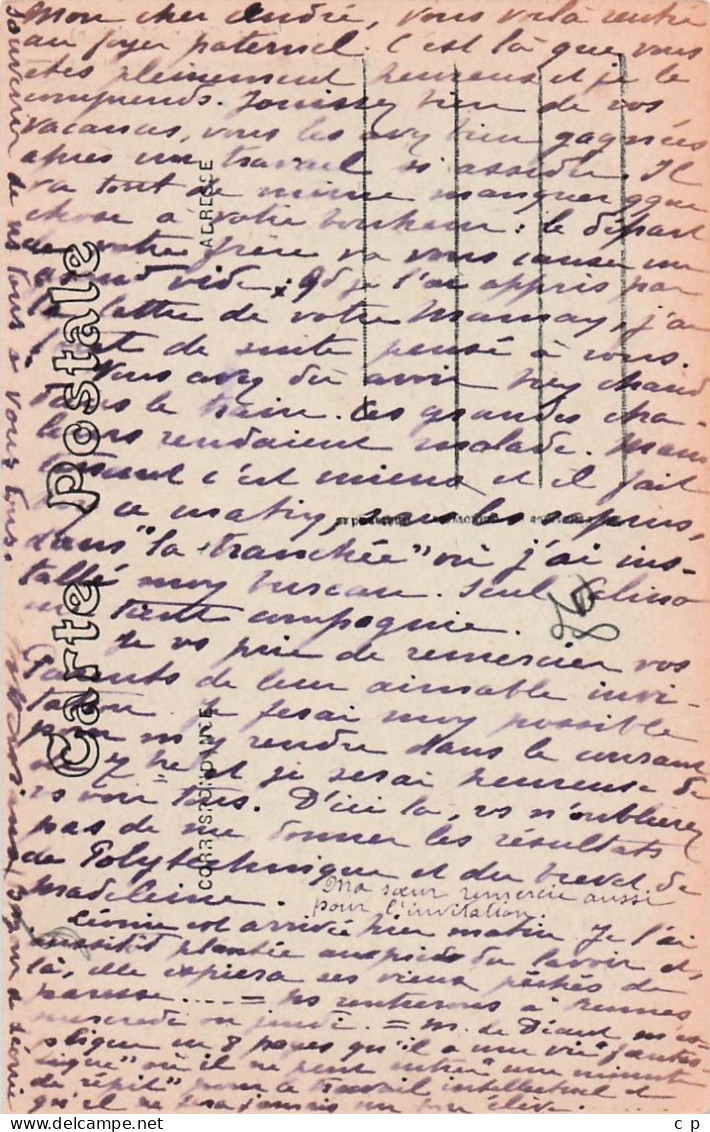 Mon cher André, vous voilà rentré
au foyer paternel. C'est là que vous
êtes pleinement heureux et je le
comprends. Jouissez bien de vos
vacances, vous les avez bien gagnées
après un travail si assidu. Il
va tout de même manquer qque
chose à votre bonheur : le départ
de votre frère va vous causer un
grand vide. Qd je l'ai appris par
la lettre de votre Maman, j'ai
tout de suite pensé à vous.
Vous avez dû avoir bien chaud
dans le train. Les grandes cha-
leurs rendaient malade. Main-
tenant c'est mieux et il fait
ce matin, sous les sapins,
dans "la tranchée" où j'ai ins-
tallé mon bureau. Seul
me tient compagnie.
Je vs prie de remercier vos
Parents de leur aimable invi-
tation. Je ferai mon possible
pour m'y rendre dans le courant
et je serai heureuse de
vs voir tous. D'ici là, vs n'oublierez
pas de me donner les résultats
de Polytechnique et du brevet de
Madeleine.
Ma sœur remercie aussi
pour l'invitation.
Léonie est arrivée hier matin. Je l'ai
aussitôt plantée aux pieds du lavoir et,
là, elle expiera ses vieux péchés de
paresse .... = ns rentrerons à Rennes
mercredi ou jeudi. = M. de m'ex-
plique en 8 pages qu'il a une vie "fantas-
tique" où il ne peut "une minute
de répit" pour le travail intellectuel et
qu'il ne sera jamais un élève.
Souvenir de ns tous à vous tous.
Carte Postale
CORRESPONDANCE
ADRESSE
cp